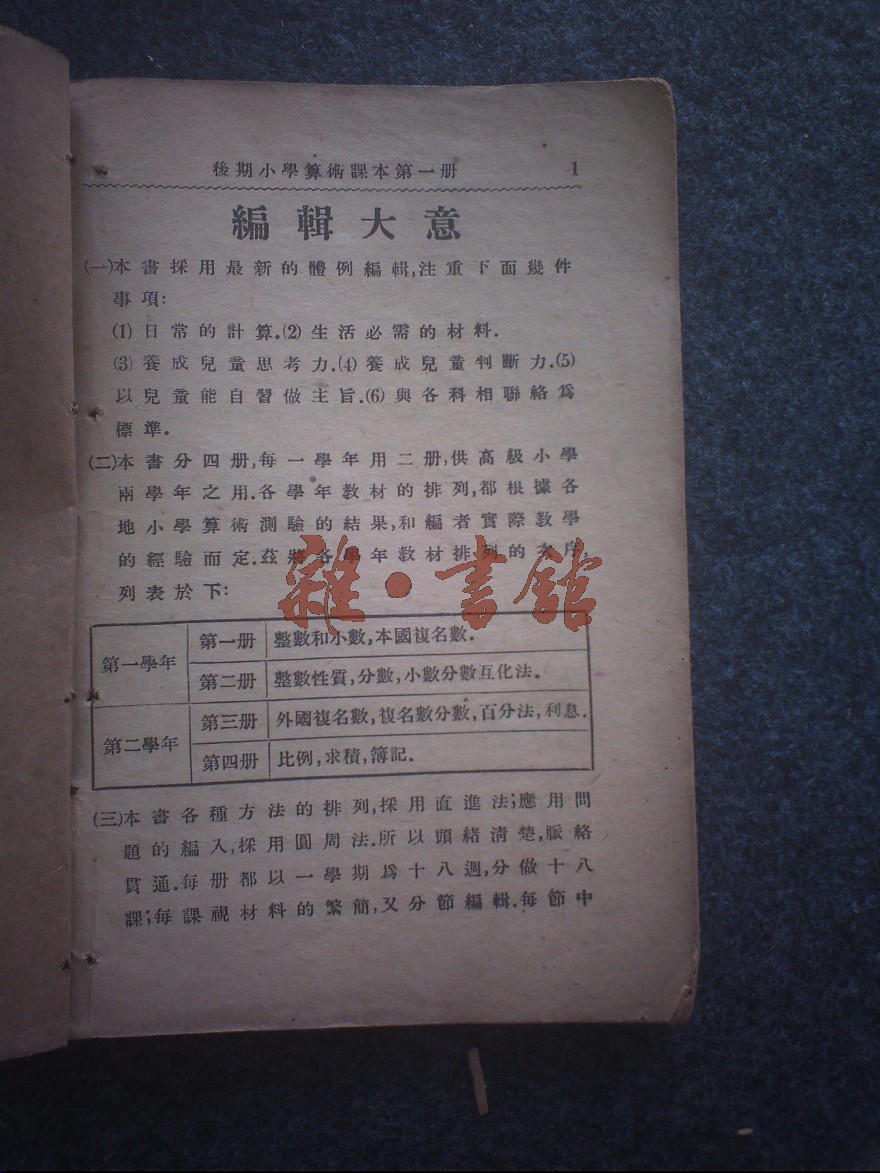 後期小學算術課本第一册 1
編輯大意
(一)本書採用最新的體例編輯,注重下面幾件
事項:
(1)日常的計算.(2)生活必需的材料.
(3)養成兒童思考力.(4)養成兒童判斷力.(5)
以兒童能自習做主旨.(6)與各科相聯絡爲
標準.
(二)本書分四册,每一學年用二册,供高級小學
兩學年之用.各學年教材的排列,都根據各
地小學算術測驗的結果,和編者實際教學
的經驗而定.茲將各學年教材排列的次序
列表於下:
第一學年
第一册 整數和小數,本國複名數.
第二册 整數性質,分數,小數分數互化法.
第二學年
第三册 外國複名數,複名數分數,百分法,利息.
第四册 比例,求積,簿記.
(三)本書各種方法的排列,採用直進法;應用問
題的編入,採用圓周法.所以頭緒淸楚,脈絡
貫通.每册都以一學期爲十八週,分做十八
課;每課視材料的繁簡,又分節編輯.每節中
雜·書館